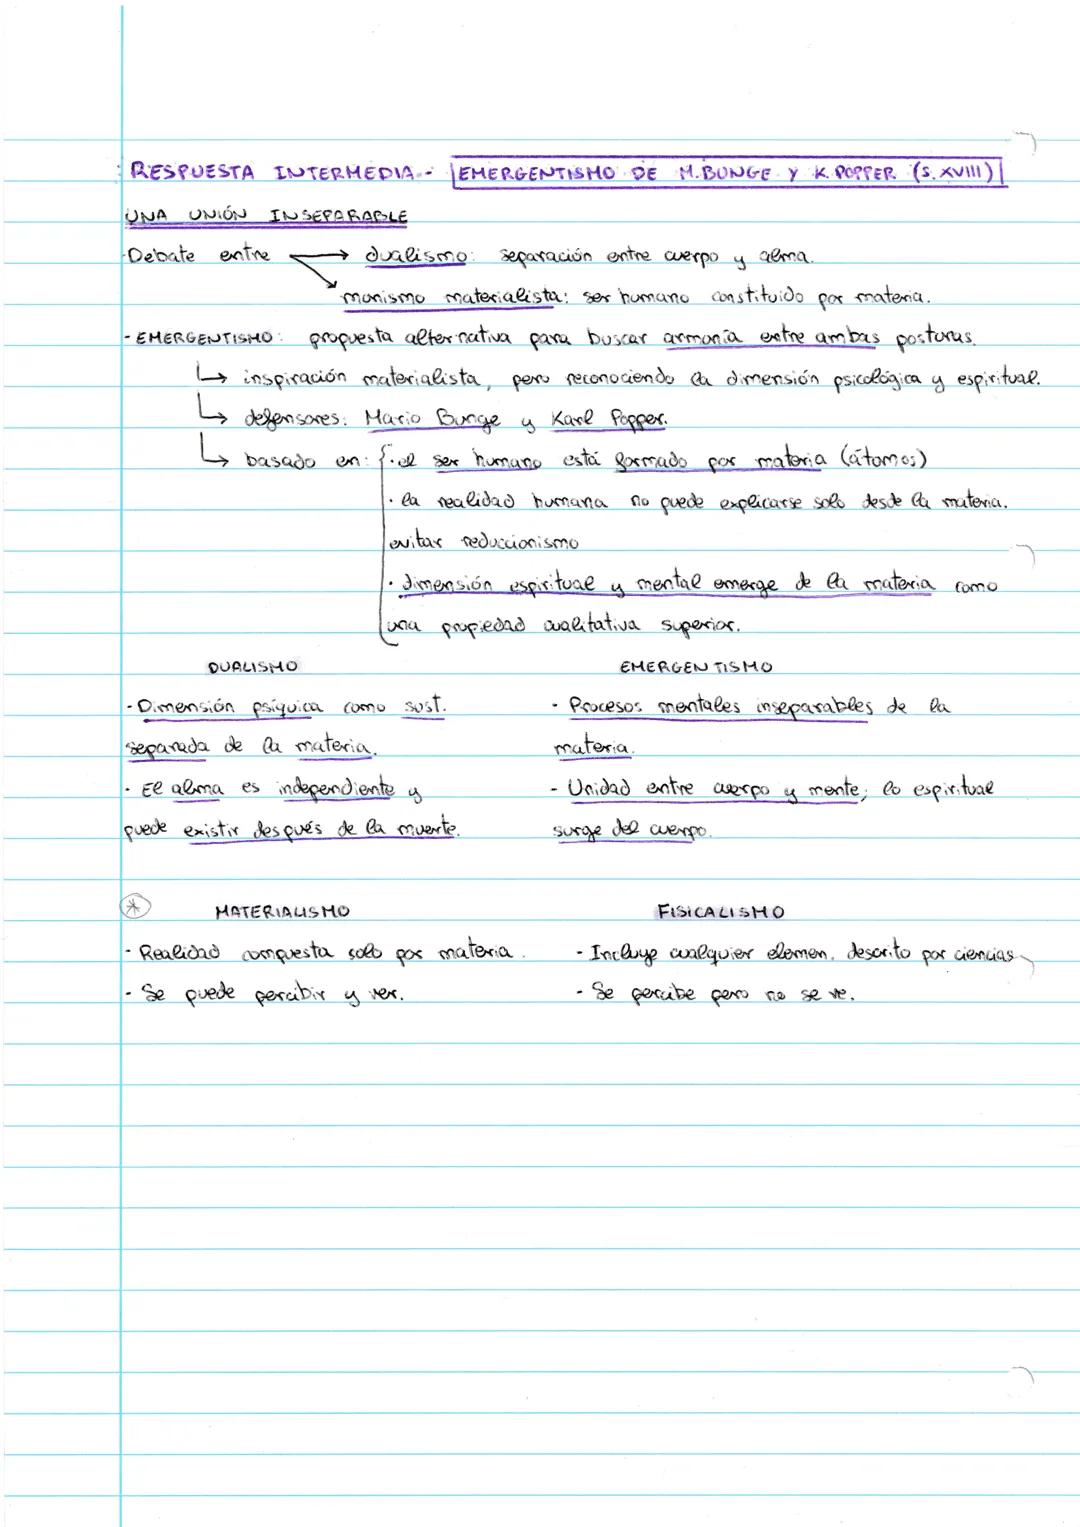 RESPUESTA INTERMEDIA.- EMERGENTISMO DE M.BUNGE Y K.POPPER (S.XVIII)
UNA UNIÓN INSEPARABLE
-Debate entre → dualismo: separación entre cuerpo y alma.
monismo materialista: ser humano constituido por materia.
- EMERGENTISMO: propuesta alternativa para buscar armonía entre ambas posturas.
↳ inspiración materialista, pero reconociendo la dimensión psicológica y espiritual.
↳ defensores: Mario Bunge y Karl Popper.
↳ basado en: { · el ser humano está formado por materia (átomos)
· la realidad humana no puede explicarse solo desde la materia.
evitar reduccionismo
· dimensión espiritual y mental emerge de la materia como
una propiedad cualitativa superior.
DUALISMO
- Dimensión psíquica como sust.
separada de la materia.
- El alma es independiente y
puede existir después de la muerte.
EMERGENTISMO
- Procesos mentales inseparables de la
materia.
- Unidad entre cuerpo y mente; lo espiritual
surge del cuerpo.
* MATERIALISMO
- Realidad compuesta solo por materia.
- Se puede percibir y ver.
FISICALISMO
- Incluye cualquier elemen. descrito por ciencias
- Se percibe pero no se ve.